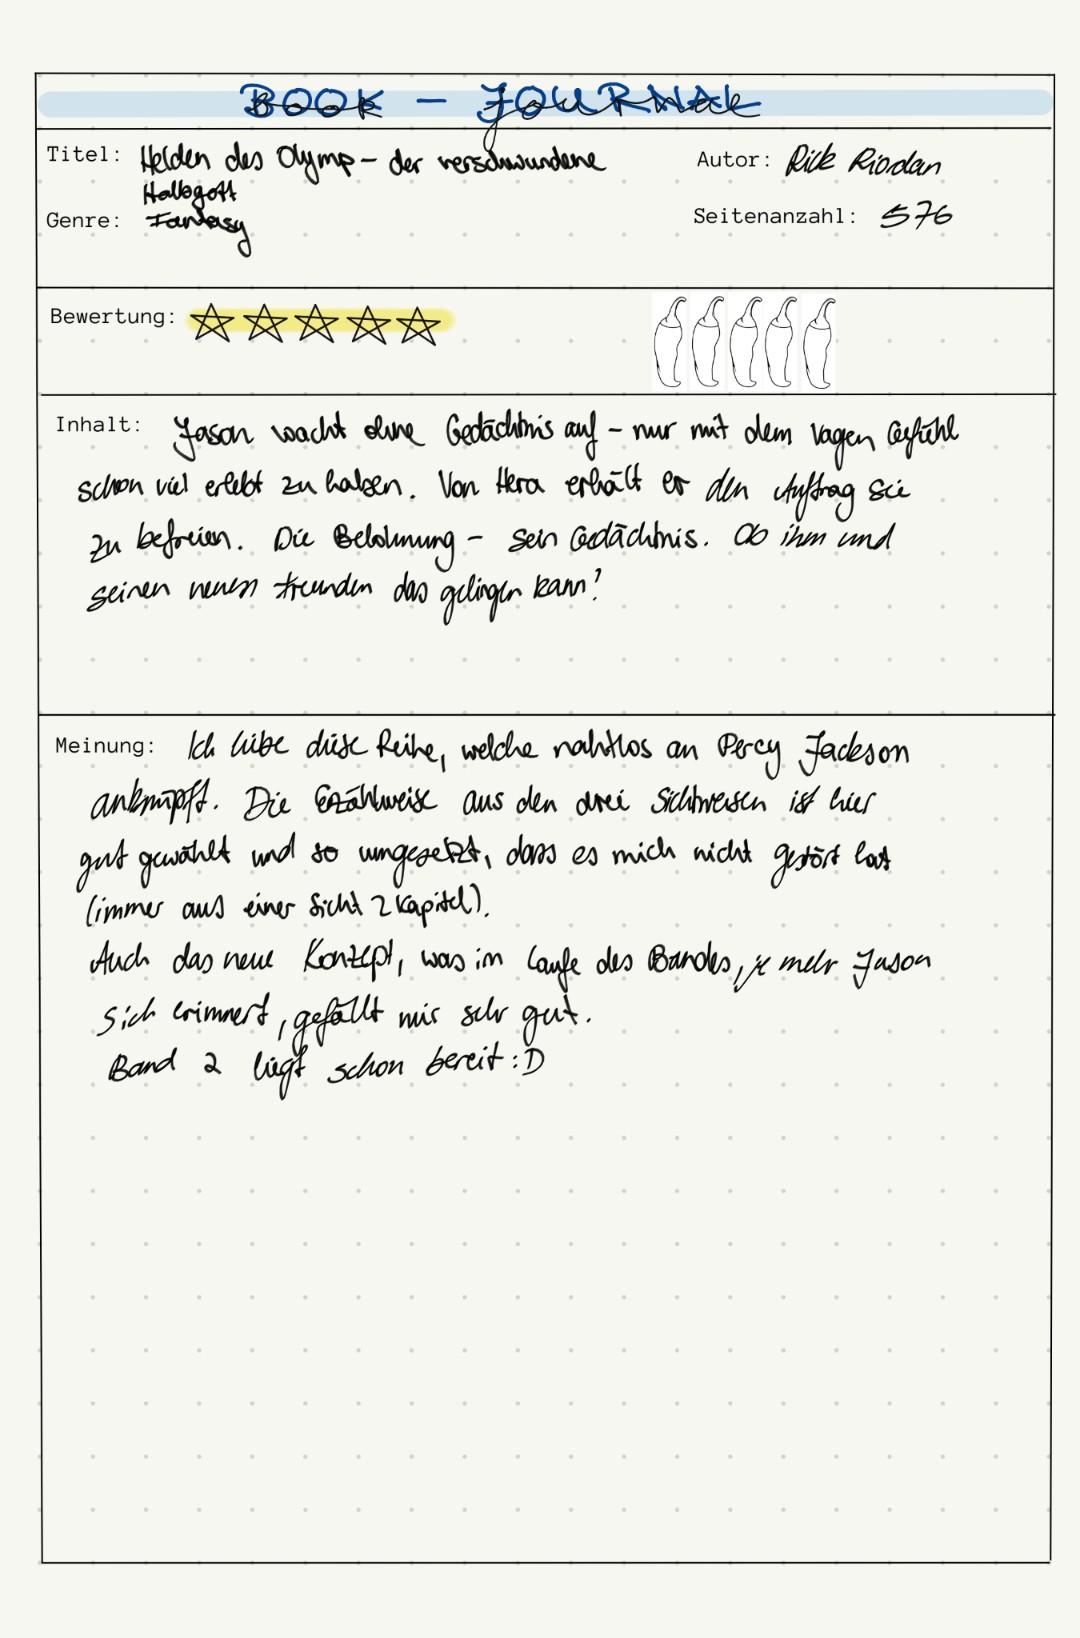 BOOK - JOURNAL
Titel: Helden des Olymp - der verschwundene Autor: Rick Riordan
Halbgott
Genre: Fantasy Seitenanzahl: 576
Bewertung:
Inhalt: Jason wacht ohne Gedächtnis auf - nur mit dem vagen Gefühl
schon viel erlebt zu haben. Von Hera erhält er den Auftrag sie
zu befreien. Die Belohnung - sein Gedächtnis. Ob ihm und
seinen neuen Freunden das gelingen kann?
Meinung: Ich liebe diese Reihe, welche nahtlos an Percy Jackson
anknüpft. Die Erzählweise aus den drei Sichtweisen ist hier
gut gewählt und so umgesetzt, dass es mich nicht gestört hat
(immer aus einer Sicht 2 Kapitel).
Auch das neue Konzept, was im Laufe des Bandes, je mehr Jason
sich erinnert, gefällt mir sehr gut.
Band 2 liegt schon bereit :D